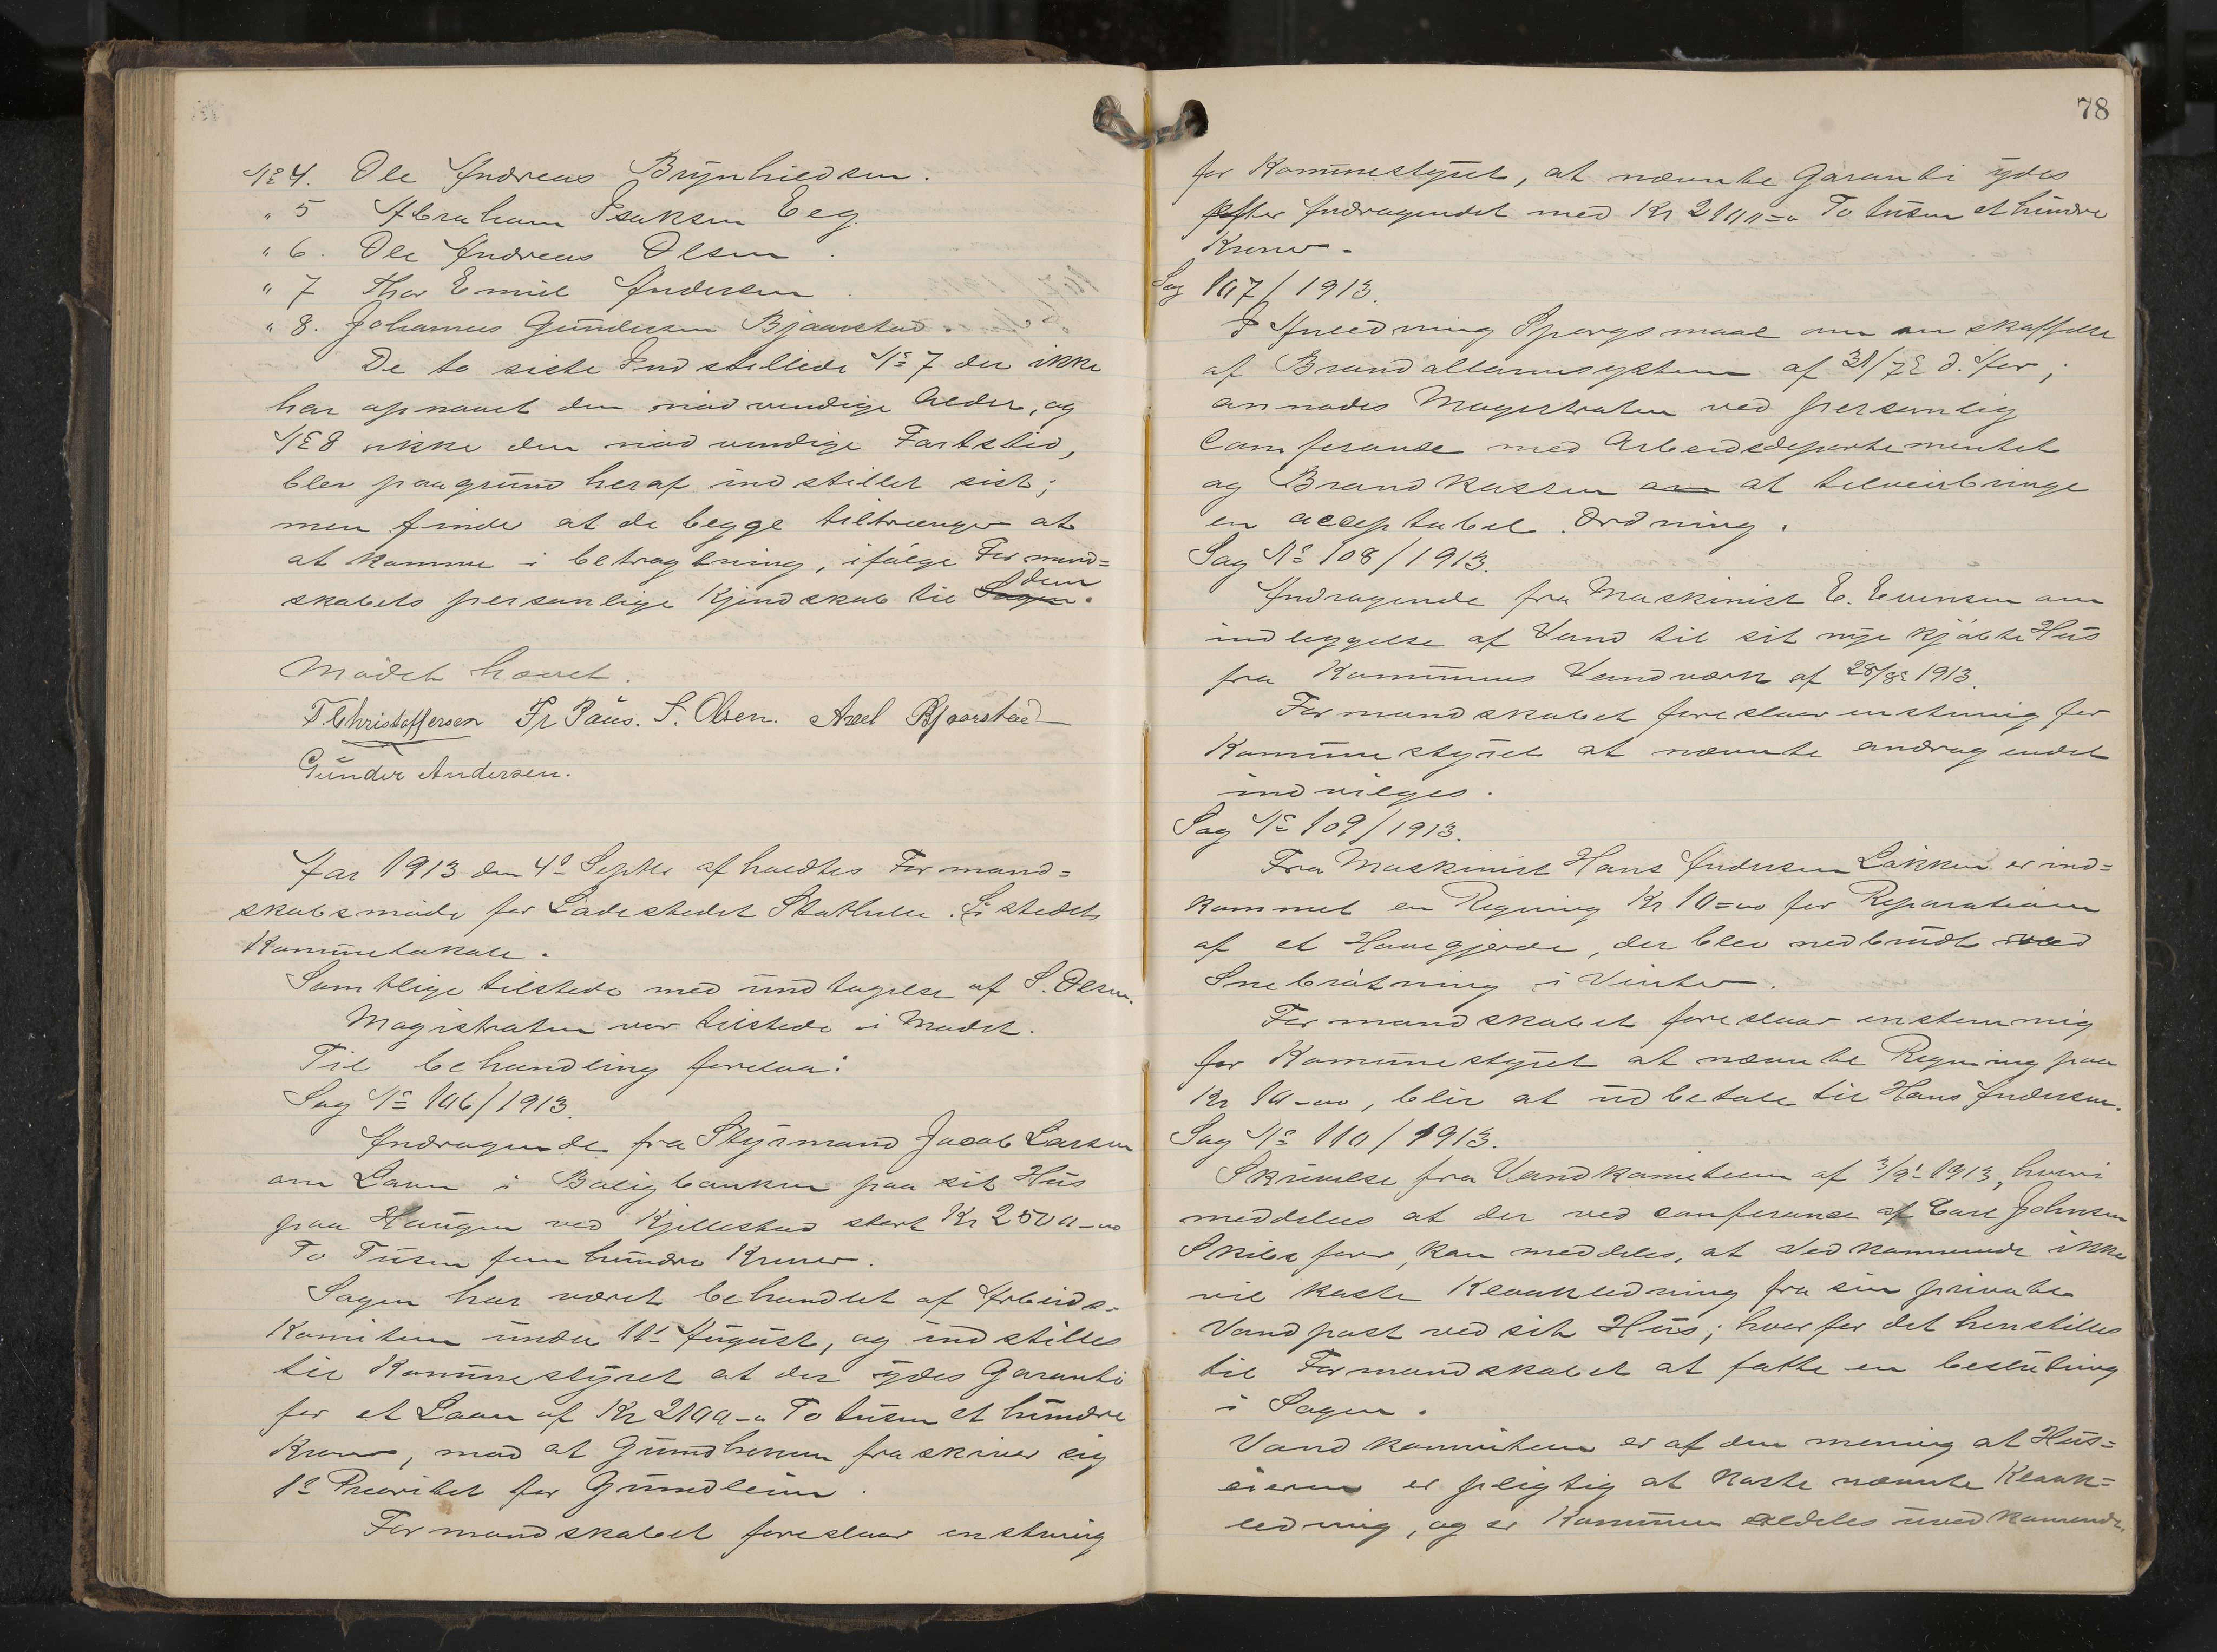 № 4. Ole Andreas Brynhildsen.
" 5 Abraham Isaksen Eeg.
" 6. Ole Andreas Olsen.
" 7 Thor Emil Andersen.
" 8. Johannes Gundersen Bjaarstad.
De to siste Indstillede № 7 der ikke
har opnaaet den nødvendige Alder, og
№ 8 ikke den nødvendige Fartstid,
blev paagrund heraf indstillet sist;
men finder at de begge tiltrænger at
at komme i betragtning, ifølge Formand=
skabets personlige Kjendskab til Sagen. dem
Mødet hævet.
T. Christoffersen Fr Paus. S. Olsen. Axel Bjaarstad
Gunder Andersen.
Aar 1913 den 4de Septbr afholdtes Formand=
skabsmøde for Ladestedet Stathelle. I stedets
Kommunelokale.
Samtlige tilstede med undtagelse af S. Olsen.
Magistraten var tilstede i Mødet.
Til behandling forelaa:
Sag № 106/1913.
Andragende fra Styrmand Jacob Larsen
om Laan i Boligbanken paa sit Hus
paa Haugen ved Kjellestad stort Kr 2500-00
To Tusen fem hundre Kroner.
Sagen har været behandlet af Arbeids-
Komiteen under 11' August, og indstilles
til Kommunestyret at der ydes Garanti
for et Laan af Kr 2100-0 To tusen et hundre
Kroner, mod at Grundherren fraskriver sig
1ste Prioritet for Grundleien.
Formandskabet foreslaar enstemig
78
for Kommunestyret, at nævnte Garanti ydes
efter Andragendet med Kr 2100=0 To tusen et hundre
Kroner.
Sag 107/1913.
I Anledning Spørgsmaal om anskaffelse
af Brandallarmsystem af 31/7 d. Aar;
anmodes Magistraten ved personlig
Conferanse med Arbeidsdepartementet
og Brandkassen om at tilveiebringe
en acceptabel Ordning.
Sag № 108/1913.
Andragende fra Maskinist E. Evensen om
indleggelse af Vand til sit nye kjøbte Hus
fra Kommunens Vandværk af 28/8 1913.
Formandskabet foreslaar enstemig for
Kommunestyret at nævnte andragendet
indvilges.
Sag № 109/1913.
Fra Maskinist Hans Andersen Løkken er ind=
kommet en Regning Kr 10=00 for Reparation
af et Havegjerde, der blev nedbrudt ved
Snebrøtning i Vinter.
Formandskabet foreslaar enstemmig
for Kommunestyret at nævnte Regning paa
Kr 10-00, blir at udbetale til Hans Andersen.
Sag № 110/1913.
Skrivelse fra Vandkomiteen af 3/9' 1913, hvori
meddeles at der ved conferanse af Carl Johnsen
Skibsfører, kan meddeles, at Vedkommende ikke
vil koste Kloakledning fra sin private
Vandpost ved sit Hus; hvorfor det henstilles
til Formandskabet at fatte en beslutning
i Sagen.
Vandkomiteen er af den mening at Hus=
eieren er pligtig at koste nævnte Kloak=
ledning, og er Kommunen aldeles uvedkommende